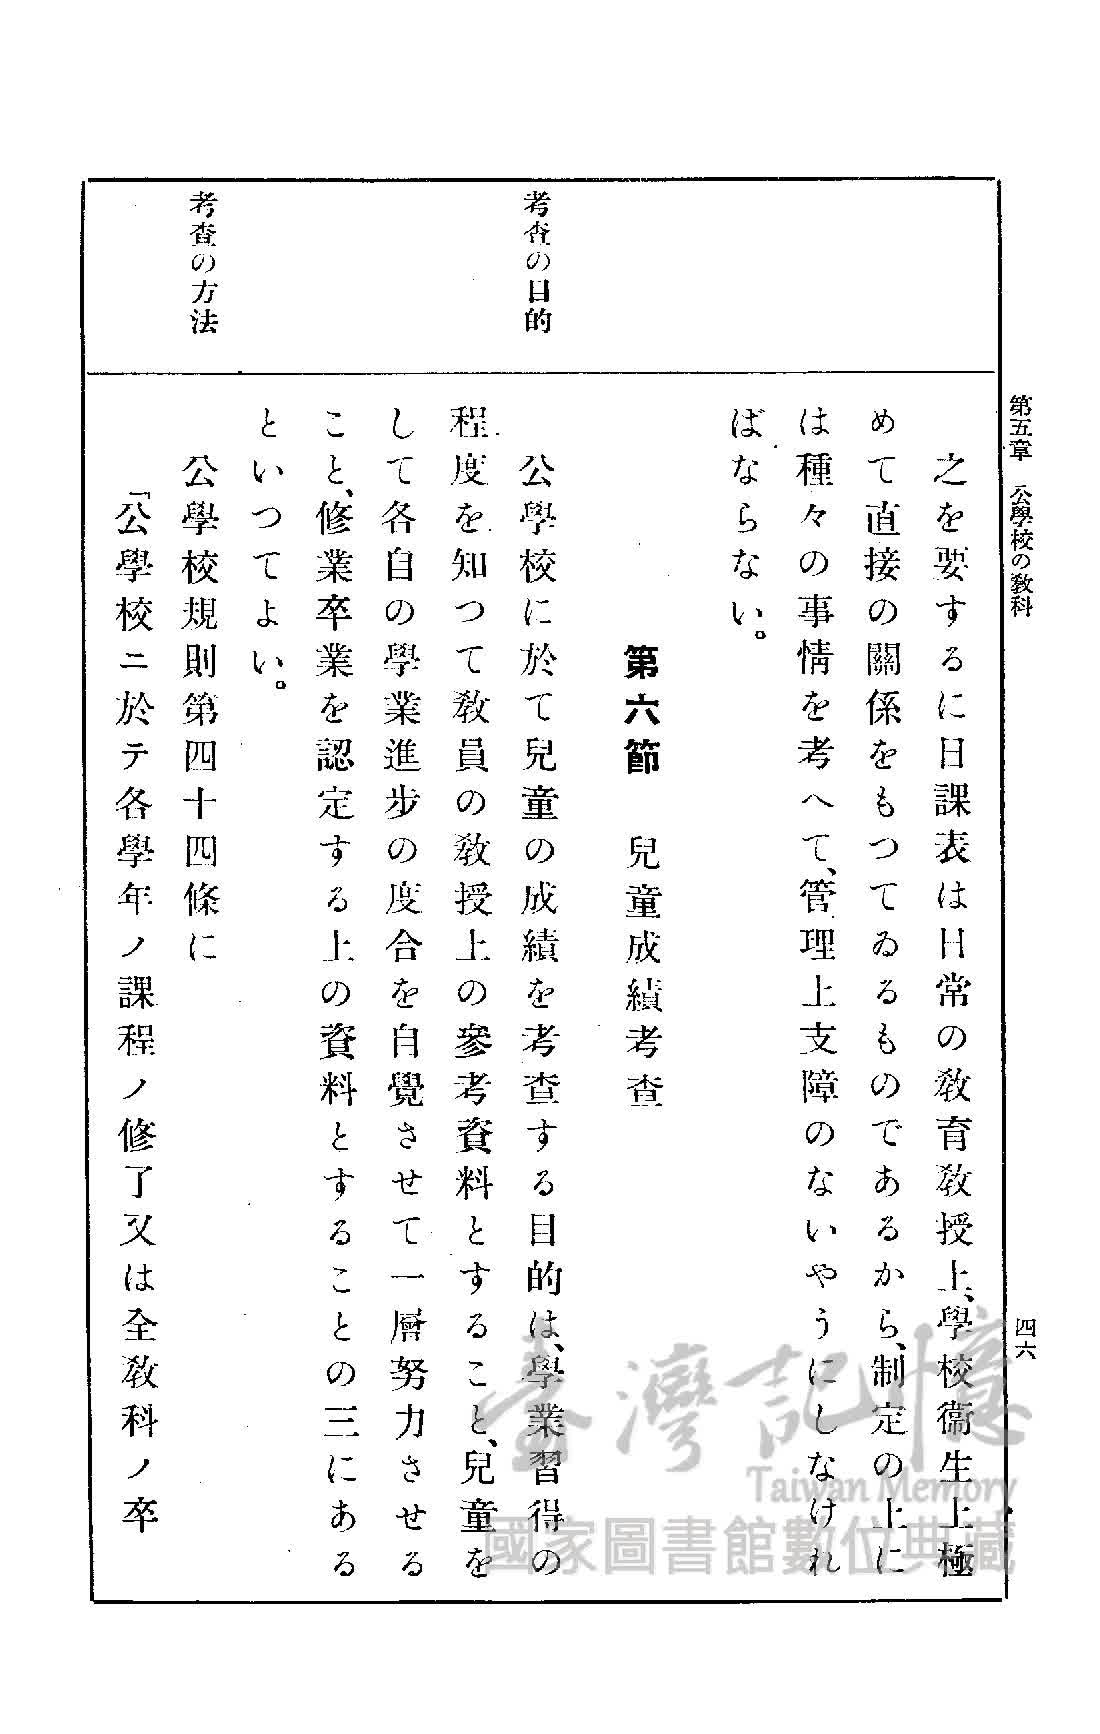 第五章　公學校の敎科
四六
之を要するに日課表は日常の敎育敎授上、學校衞生上極
めて直接の關係をもつてゐるものであるから、制定の上に
は種々の事情を考へて、管理上支障のないやうにしなけれ
ばならない。
第六節　兒童成績考查
考查の目的
公學校に於て兒童の成績を考查する目的は、學業習得の
程度を知つて敎員の敎授上の參考資料とすること、兒童を
して各自の學業進步の度合を自覺させて一層努力させる
こと、修業卒業を認定する上の資料とすることの三にある
といつてよい。
考查の方法
公學校規則第四十四條に
「公學校ニ於テ各學年ノ課程ノ修了又は全敎科ノ卒
臺灣記憶
Taiwan Memory
國家圖書館數位典藏